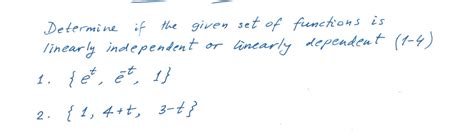 Determine if the given set of functions is
linearly independent or linearly dependent (1-4)
1. {e^t, e^-t, 1}
2. {1, 4+t, 3-t}